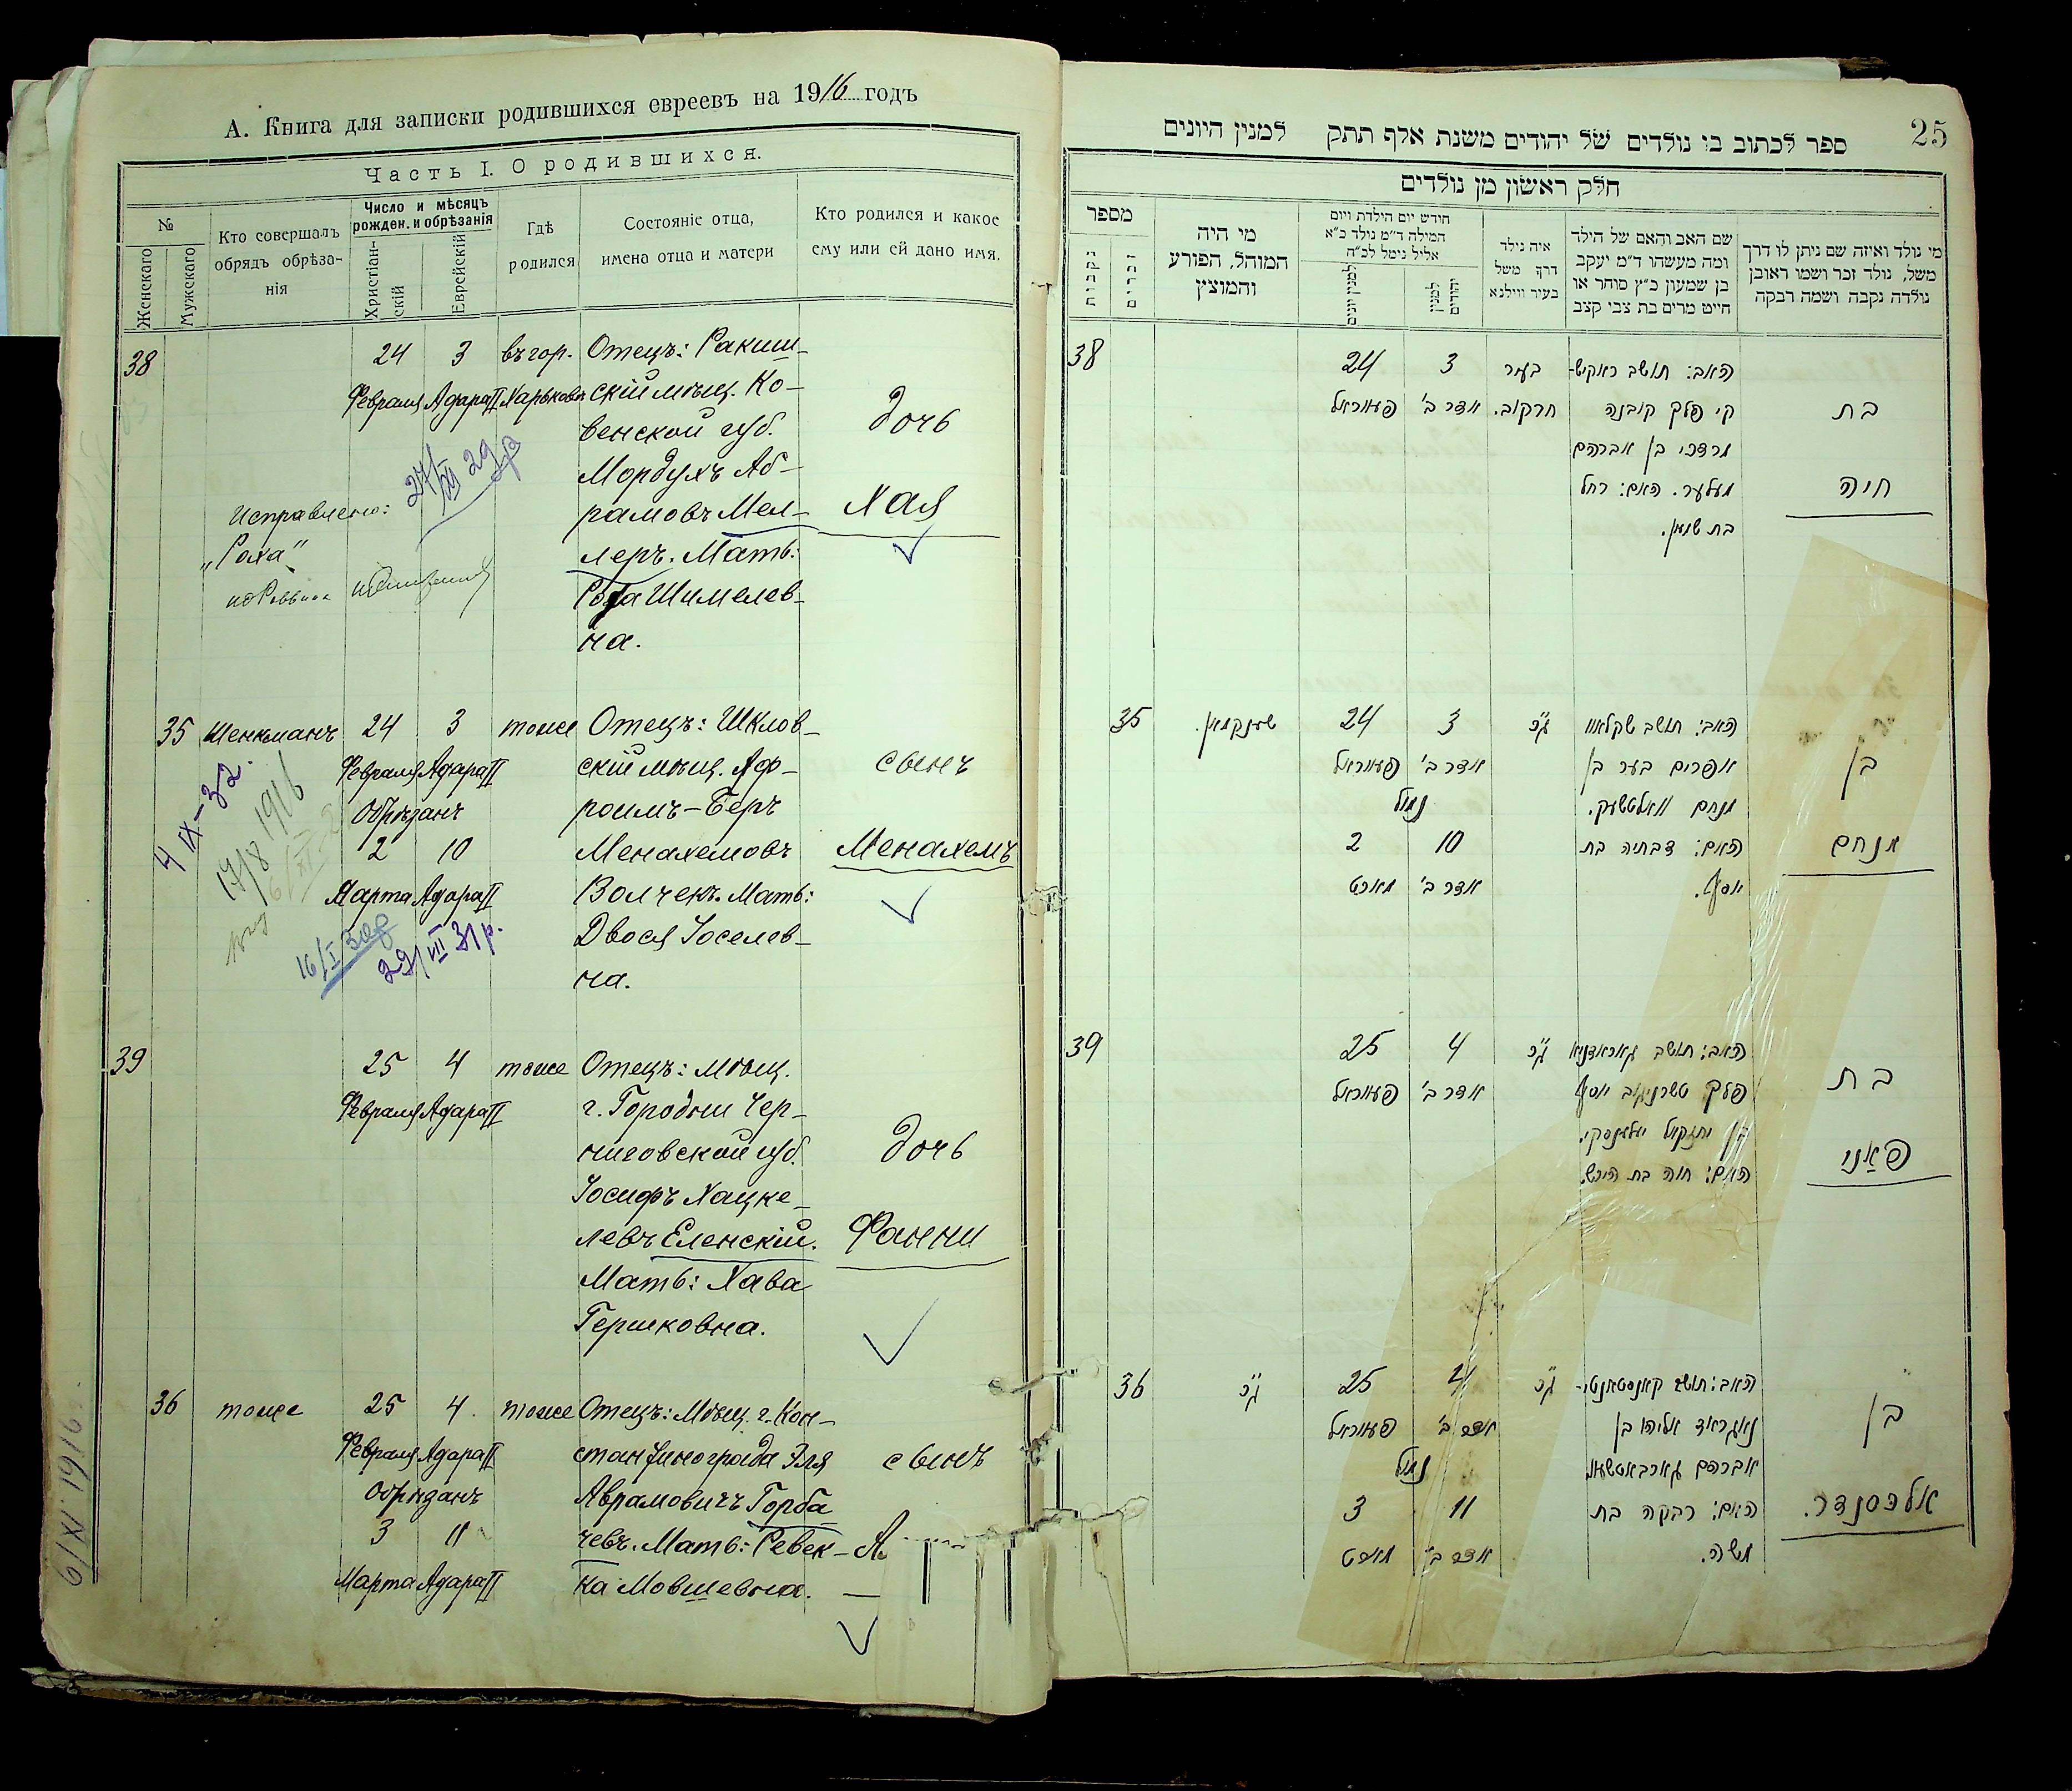 А. Книга для записки родившихся евреевъ на 1916 годъ
Часть I. О родившихся.
№
Женскаго
Мужскаго
Кто совершалъ
обрядъ обрѣза-
нія
Число и мѣсяцъ
рожден. и обрѣзанія
Христіан-
скій
Еврейскій
Гдѣ
родился
Состояніе отца,
имена отца и матери
Кто родился и какое
ему или ей дано имя.
38 24 3 въ гор. Отецъ: Ракиш-
Февраля Адара II Харьковѣ скій мѣщ. Ко-
венской губ. дочь
27/XII 29 р
Мордухъ Аб-
рамовъ Мел- Хая
Исправлено:
леръ. Мать:
„Роха"
Роха Шимелев-
на.
35 Шенкманъ 24 3 тоже Отецъ: Шклов-
Февраля Адара II скій мѣщ. Аф- сынъ
Обрѣзанъ роимъ-Беръ
2 10 Менахемовъ Менахемъ
Марта Адара II Волчекъ. Мать:
Двося Іоселев-
на.
4 IX-32.
17/8 1916
16/I 30р
29/VII 31 р.
39 25 4 тоже Отецъ: Мѣщ.
Февраля Адара II г. Городни Чер-
ниговской губ. дочь
Іосифъ Хацке-
левъ Еленскій. Фанни
Мать: Хава
Гершковна.
36 тоже 25 4 тоже Отецъ: Мѣщ. г. Кон-
Февраля Адара II стантинограда Эля сынъ
Обрѣзанъ Аврамовичъ Горба
3 11 чевъ. Мать: Ревек- А
Марта Адара II ка Мовшевна.
6/XI 1916
25
ספר לכתוב בו נולדים של יהודים משנת אלף תתק למנין היונים
חלק ראשון מן נולדים
מספר
נקבות
זכרים
מי היה
המוהל, הפורע
והמוצץ
חודש יום הילדת ויום
המילה ד״מ נולד כ״א
אליל נימל לכ״ח
למנין יונים
למנין יהודים
איה נילד
דרך משל
בעיר ווילנא
שם האב והאם של הילד
ומה מעשהו ד״מ יעקב
בן שמעון כ״ץ סוחר או
חייט מרים בת צבי קצב
מי נולד ואיזה שם ניתן לו דרך
משל, נולד זכר ושמו ראובן
נולדה נקבה ושמה רבקה
38 24 3 בעיר האב: תושב ראקיש-
פעווראל אדר ב' חרקוב. קי פלך קובנה בת
מרדכי בן אברהם
מעלער. האם: רחל חיה
בת שמען.
35 שענקמאן. 24 3 ג״כ האב: תושב שקלאוו
פעווראל אדר ב' אפרים בער בן בן
נמול מנחם וואלטשעק.
2 10 האם: דבתיה בת מנחם
מארט אדר ב' יוסף.
39 25 4 ג״כ האב: תושב גאראדניא
פעווראל אדר ב' פלך טשרניגוב יוסף בת
בן יחזקאל יעלענסקי.
האם: חוה בת הירש. פאני
36 ג״כ 25 4 ג״כ האב: תושב קאנסטאנטי-
פעווראל אדר ב' נאגראד אליהו בן בן
נמול אברהם גארבאטשעוו.
3 11 האם: רבקה בת אלכסנדר.
מארט אדר ב' משה.